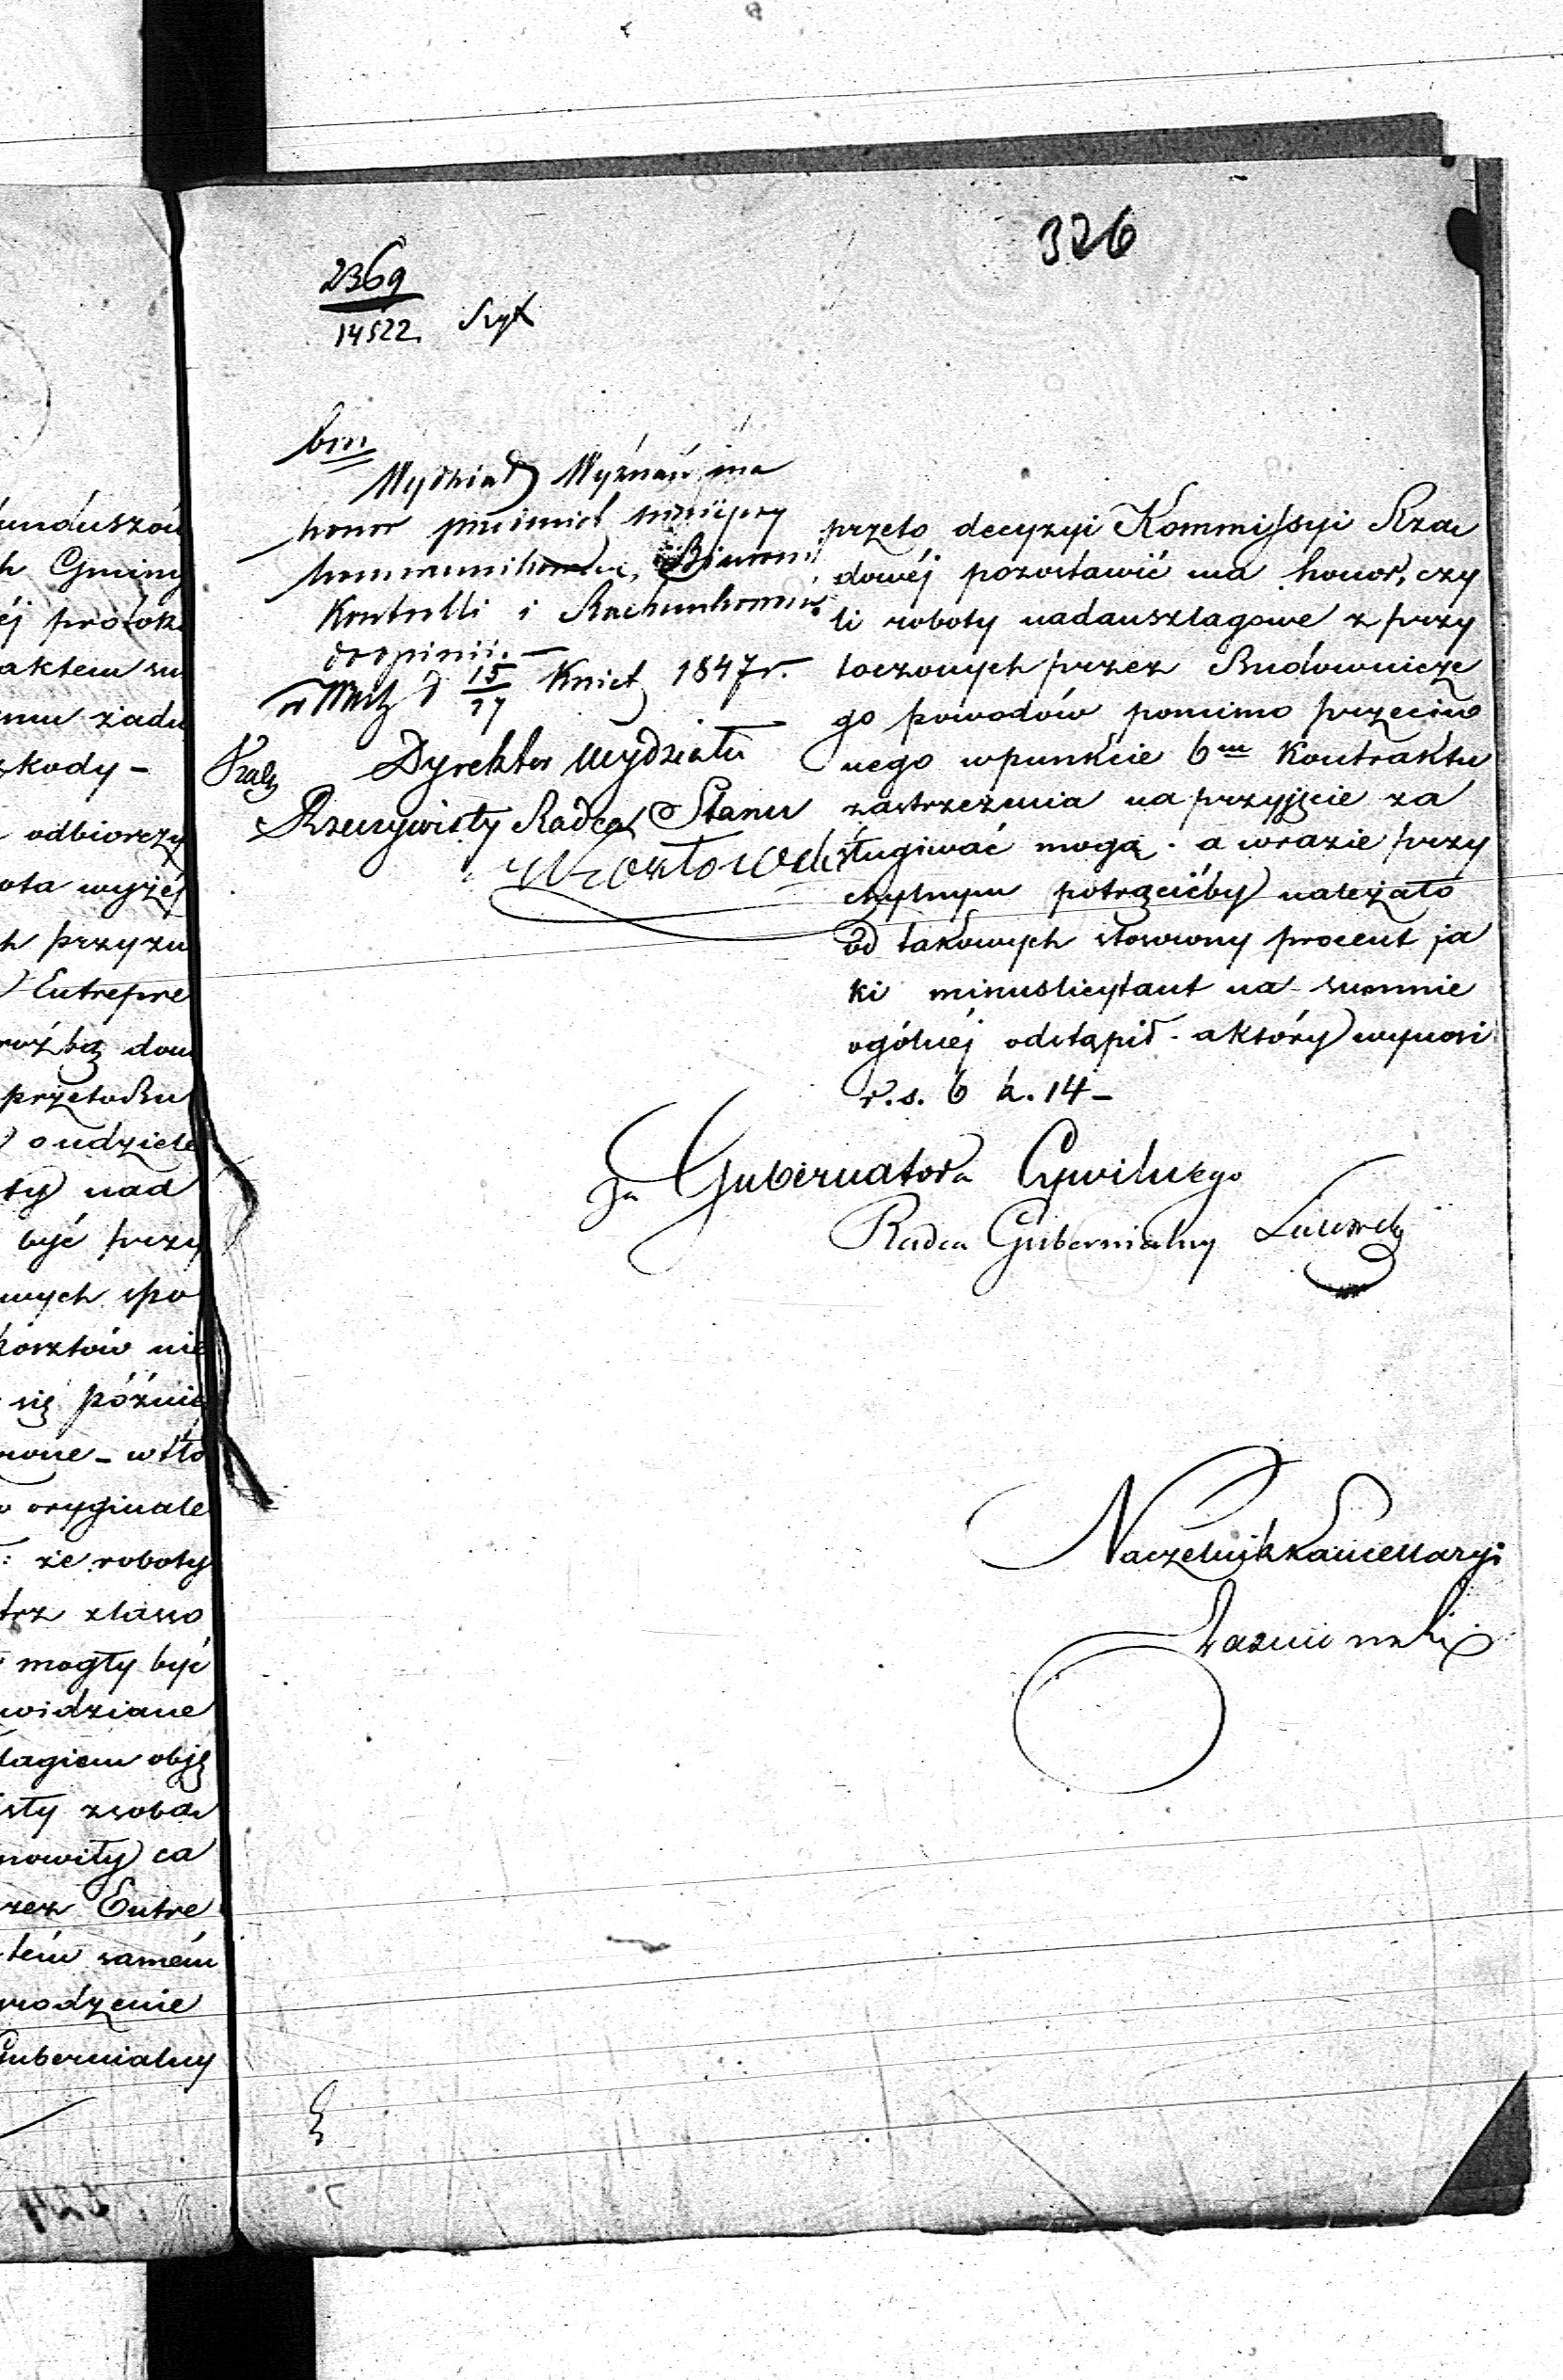 326
2369
14522
Wydział Wyznań ma
honor
Kontrolli i Rachunkowości
do opinii. —
15
27 Kwiet 1847 r.
Dyrektor Wydziału
Rzeczywisty Radca Stanu
przeto decyzyi Kommissyi Rzą
dowéj pozostawić ma honor, czy
li roboty nadanszlagowe z przy
toczonych przez Budownicze
go powodów pomimo przeciw
nego w punkcie 6m Kontraktu
zastrzeżenia na przyjęcie za
sługiwać mogą. a w razie przy
chylnym potrącićby należało
od takowych stosowny procent ja
ki minuslicytant na summie
ogólnéj odstąpił. a który wynosi
r.s. 6 k. 14 —
Za Gubernatora Cywilnego
Radca Gubernialny
Naczelnik Kancellaryi
funduszów
h Gminy
éj protok
aktem
żadn
zkody —
odbiorczy
ota wyżéj
h przyzn
Entrepre
przeto
o udziele
ty nad
być przy
wych spo
kosztów nie
się późnié
oryginale
: że roboty
mogły być
widziane
lagiem obję
sły z sobą
nowiły ca
rzez Entre
tém samém
rodzenie
Gubernialny